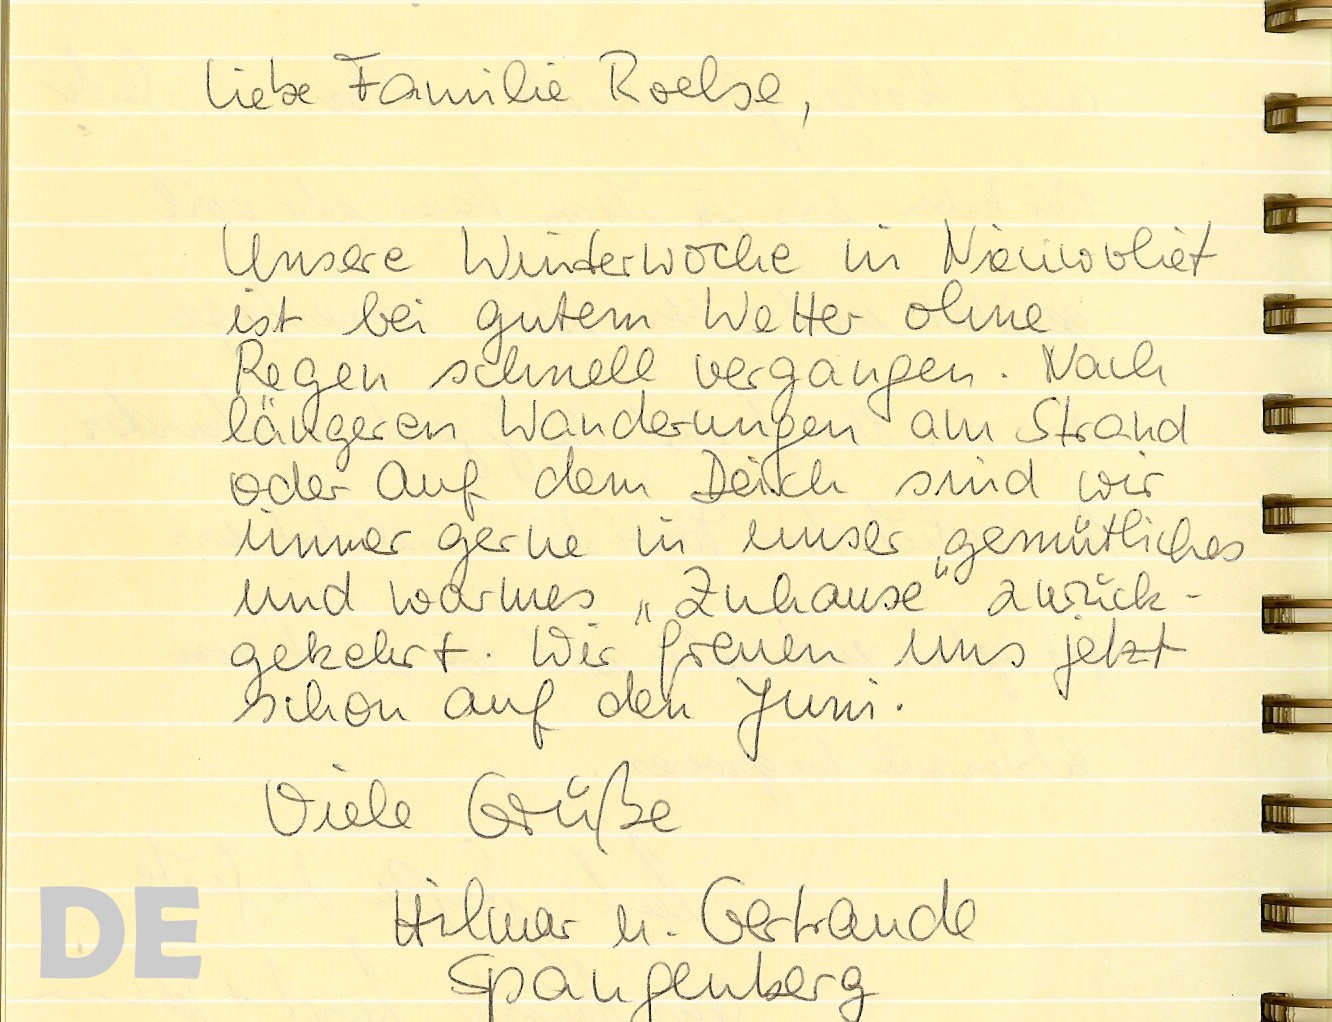 Liebe Familie Roelse,
Unsere Winterwoche in Nieuwvliet
ist bei gutem Wetter ohne
Regen schnell vergangen. Nach
längeren Wanderungen am Strand
oder auf dem Deich sind wir
immer gerne in unser „gemütliches
und warmes „Zuhause“ zurück-
gekehrt. Wir freuen uns jetzt
schon auf den Juni.
Viele Grüße
Hilmar u. Gertraude
Spangenberg
DE